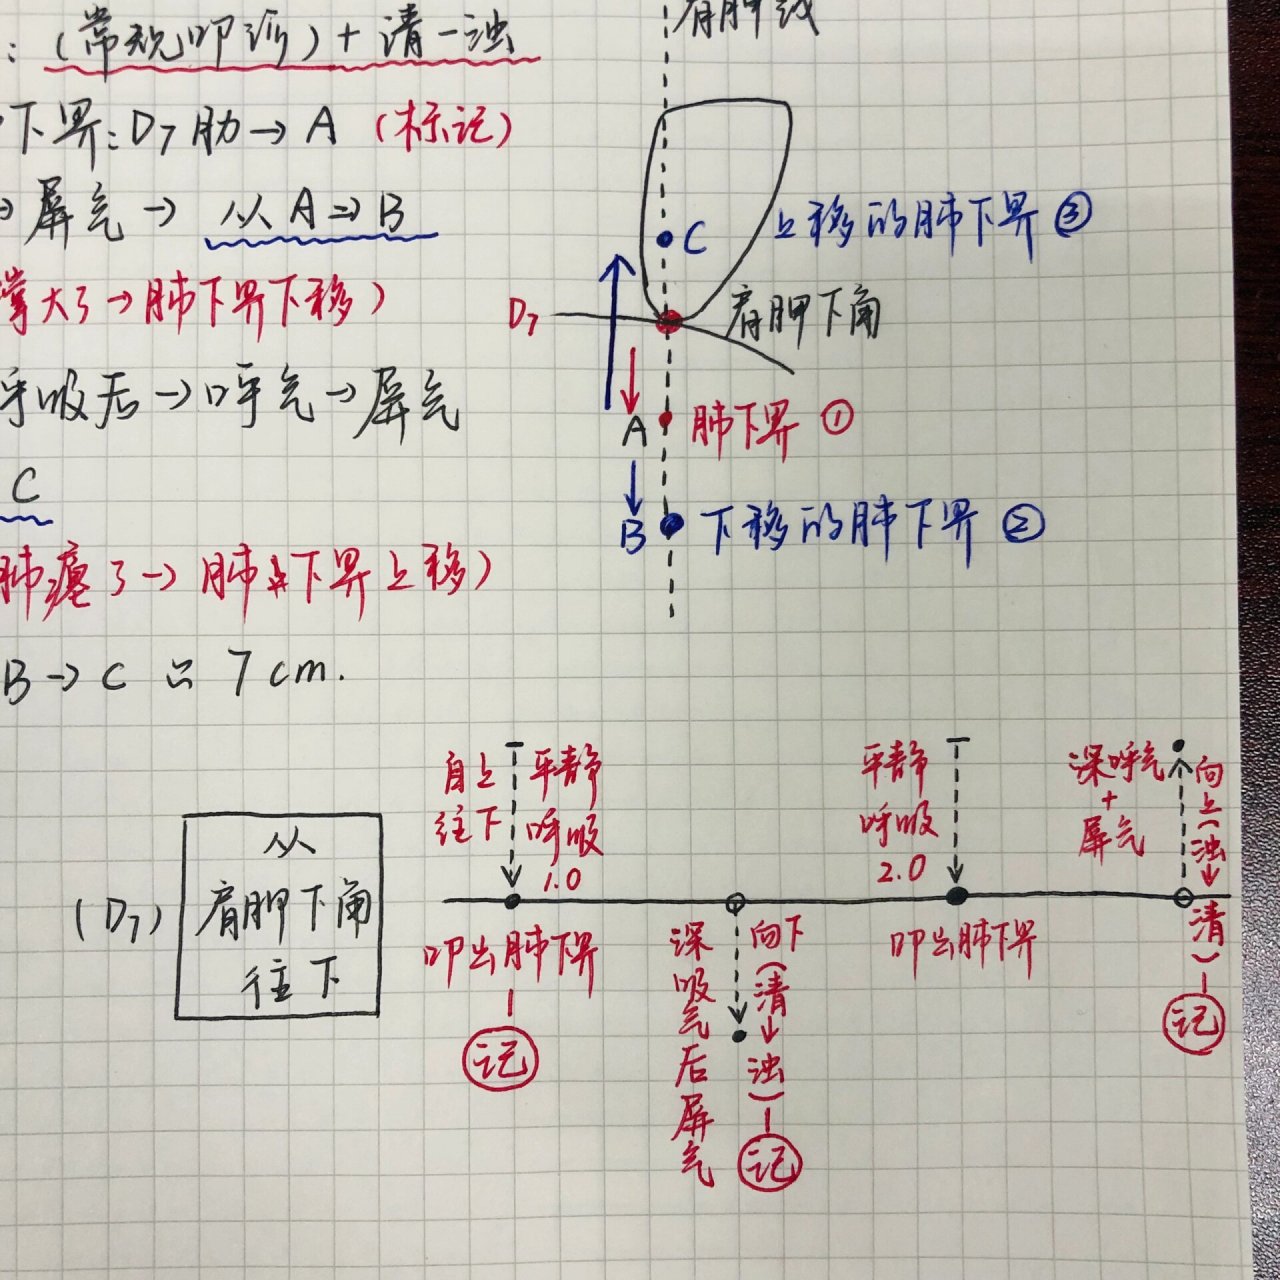 ：(常规叩诊)＋清－浊
下界：D7肋→A (标记)
→屏气→从A⇒B
撑大了→肺下界下移)
呼吸后→呼气→屏气
C
肺瘪了→肺下界上移)
B→C 7cm.
肩胛线
C 上移的肺下界③
D7 肩胛下角
A 肺下界①
B 下移的肺下界②
(D7)
从
肩胛下角
往下
自上
往下
平静
呼吸
1.0
叩出肺下界
记
深吸气后屏气
向下(清→浊)
记
平静
呼吸
2.0
叩出肺下界
深呼气
+
屏气
向上(浊→清)
记